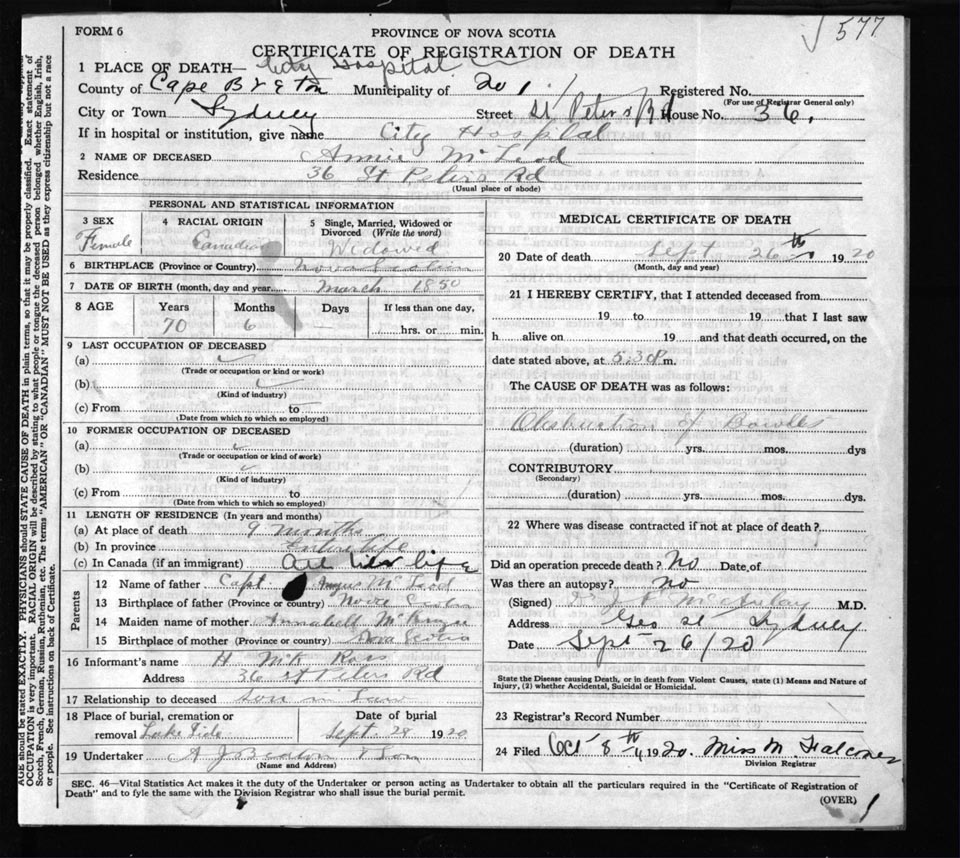 577
FORM 6
PROVINCE OF NOVA SCOTIA
CERTIFICATE OF REGISTRATION OF DEATH
1 PLACE OF DEATH— City Hospital
County of Cape Breton Municipality of 201 Registered No.
(For use of Registrar General only)
City or Town Sydney Street St Peters Rd House No. 36.
If in hospital or institution, give name City Hospital
2 NAME OF DECEASED Annie McLeod
Residence 36 St Peters Rd
(Usual place of abode)
PERSONAL AND STATISTICAL INFORMATION
3 SEX Female
4 RACIAL ORIGIN Canadian
5 Single, Married, Widowed or Divorced (Write the word) Widowed
6 BIRTHPLACE (Province or Country) Nova Scotia
7 DATE OF BIRTH (month, day and year) March 1850
8 AGE Years 70 Months 6 Days — If less than one day, hrs. or min.
9 LAST OCCUPATION OF DECEASED
(a)
(Trade or occupation or kind of work)
(b)
(Kind of industry)
(c) From to
(Date from which to which so employed)
10 FORMER OCCUPATION OF DECEASED
(a)
(Trade or occupation or kind of work)
(b)
(Kind of industry)
(c) From to
(Date from which to which so employed)
11 LENGTH OF RESIDENCE (In years and months)
(a) At place of death 9 months
(b) In province Entire life
(c) In Canada (if an immigrant) all her life
Parents
12 Name of father Capt Angus McLeod
13 Birthplace of father (Province or country) Nova Scotia
14 Maiden name of mother Annabell
15 Birthplace of mother (Province or country) Nova Scotia
16 Informant's name H McK Ross
Address 36 St Peters Rd
17 Relationship to deceased Son in Law
18 Place of burial, cremation or removal Lake Side
Date of burial Sept. 28 1920.
19 Undertaker A J Beaton & Son
(Name and Address)
MEDICAL CERTIFICATE OF DEATH
20 Date of death Sept 26th 1920
(Month, day and year)
21 I HEREBY CERTIFY, that I attended deceased from
19 to 19 that I last saw
h alive on 19 and that death occurred, on the
date stated above, at 5:30 P m.
The CAUSE OF DEATH was as follows:
Obstruction of Bowles
(duration) yrs. mos. dys
CONTRIBUTORY
(Secondary)
(duration) yrs. mos. dys.
22 Where was disease contracted if not at place of death?
Did an operation precede death? No Date of
Was there an autopsy? No
(Signed) McAulay M.D.
Address Geo St Sydney
Date Sept 26/20
State the Disease causing Death, or in death from Violent Causes, state (1) Means and Nature of
Injury, (2) whether Accidental, Suicidal or Homicidal.
23 Registrar's Record Number
24 Filed Oct 8th 1920. Miss M. Falconer
Division Registrar
SEC. 46—Vital Statistics Act makes it the duty of the Undertaker or person acting as Undertaker to obtain all the particulars required in the "Certificate of Registration of
Death" and to fyle the same with the Division Registrar who shall issue the burial permit.
(OVER)
AGE should be stated EXACTLY. PHYSICIANS should STATE CAUSE OF DEATH in plain terms, so that it may be properly classified. Exact statement of
OCCUPATION is very important. RACIAL ORIGIN will be described by stating to what people or tongue the deceased person belonged whether English, Irish,
Scotch, French, German, Russian, Ruthenian, etc. The terms "AMERICAN" OR "CANADIAN" MUST NOT BE USED as they express citizenship but not a race
or people. See instructions on back of Certificate.